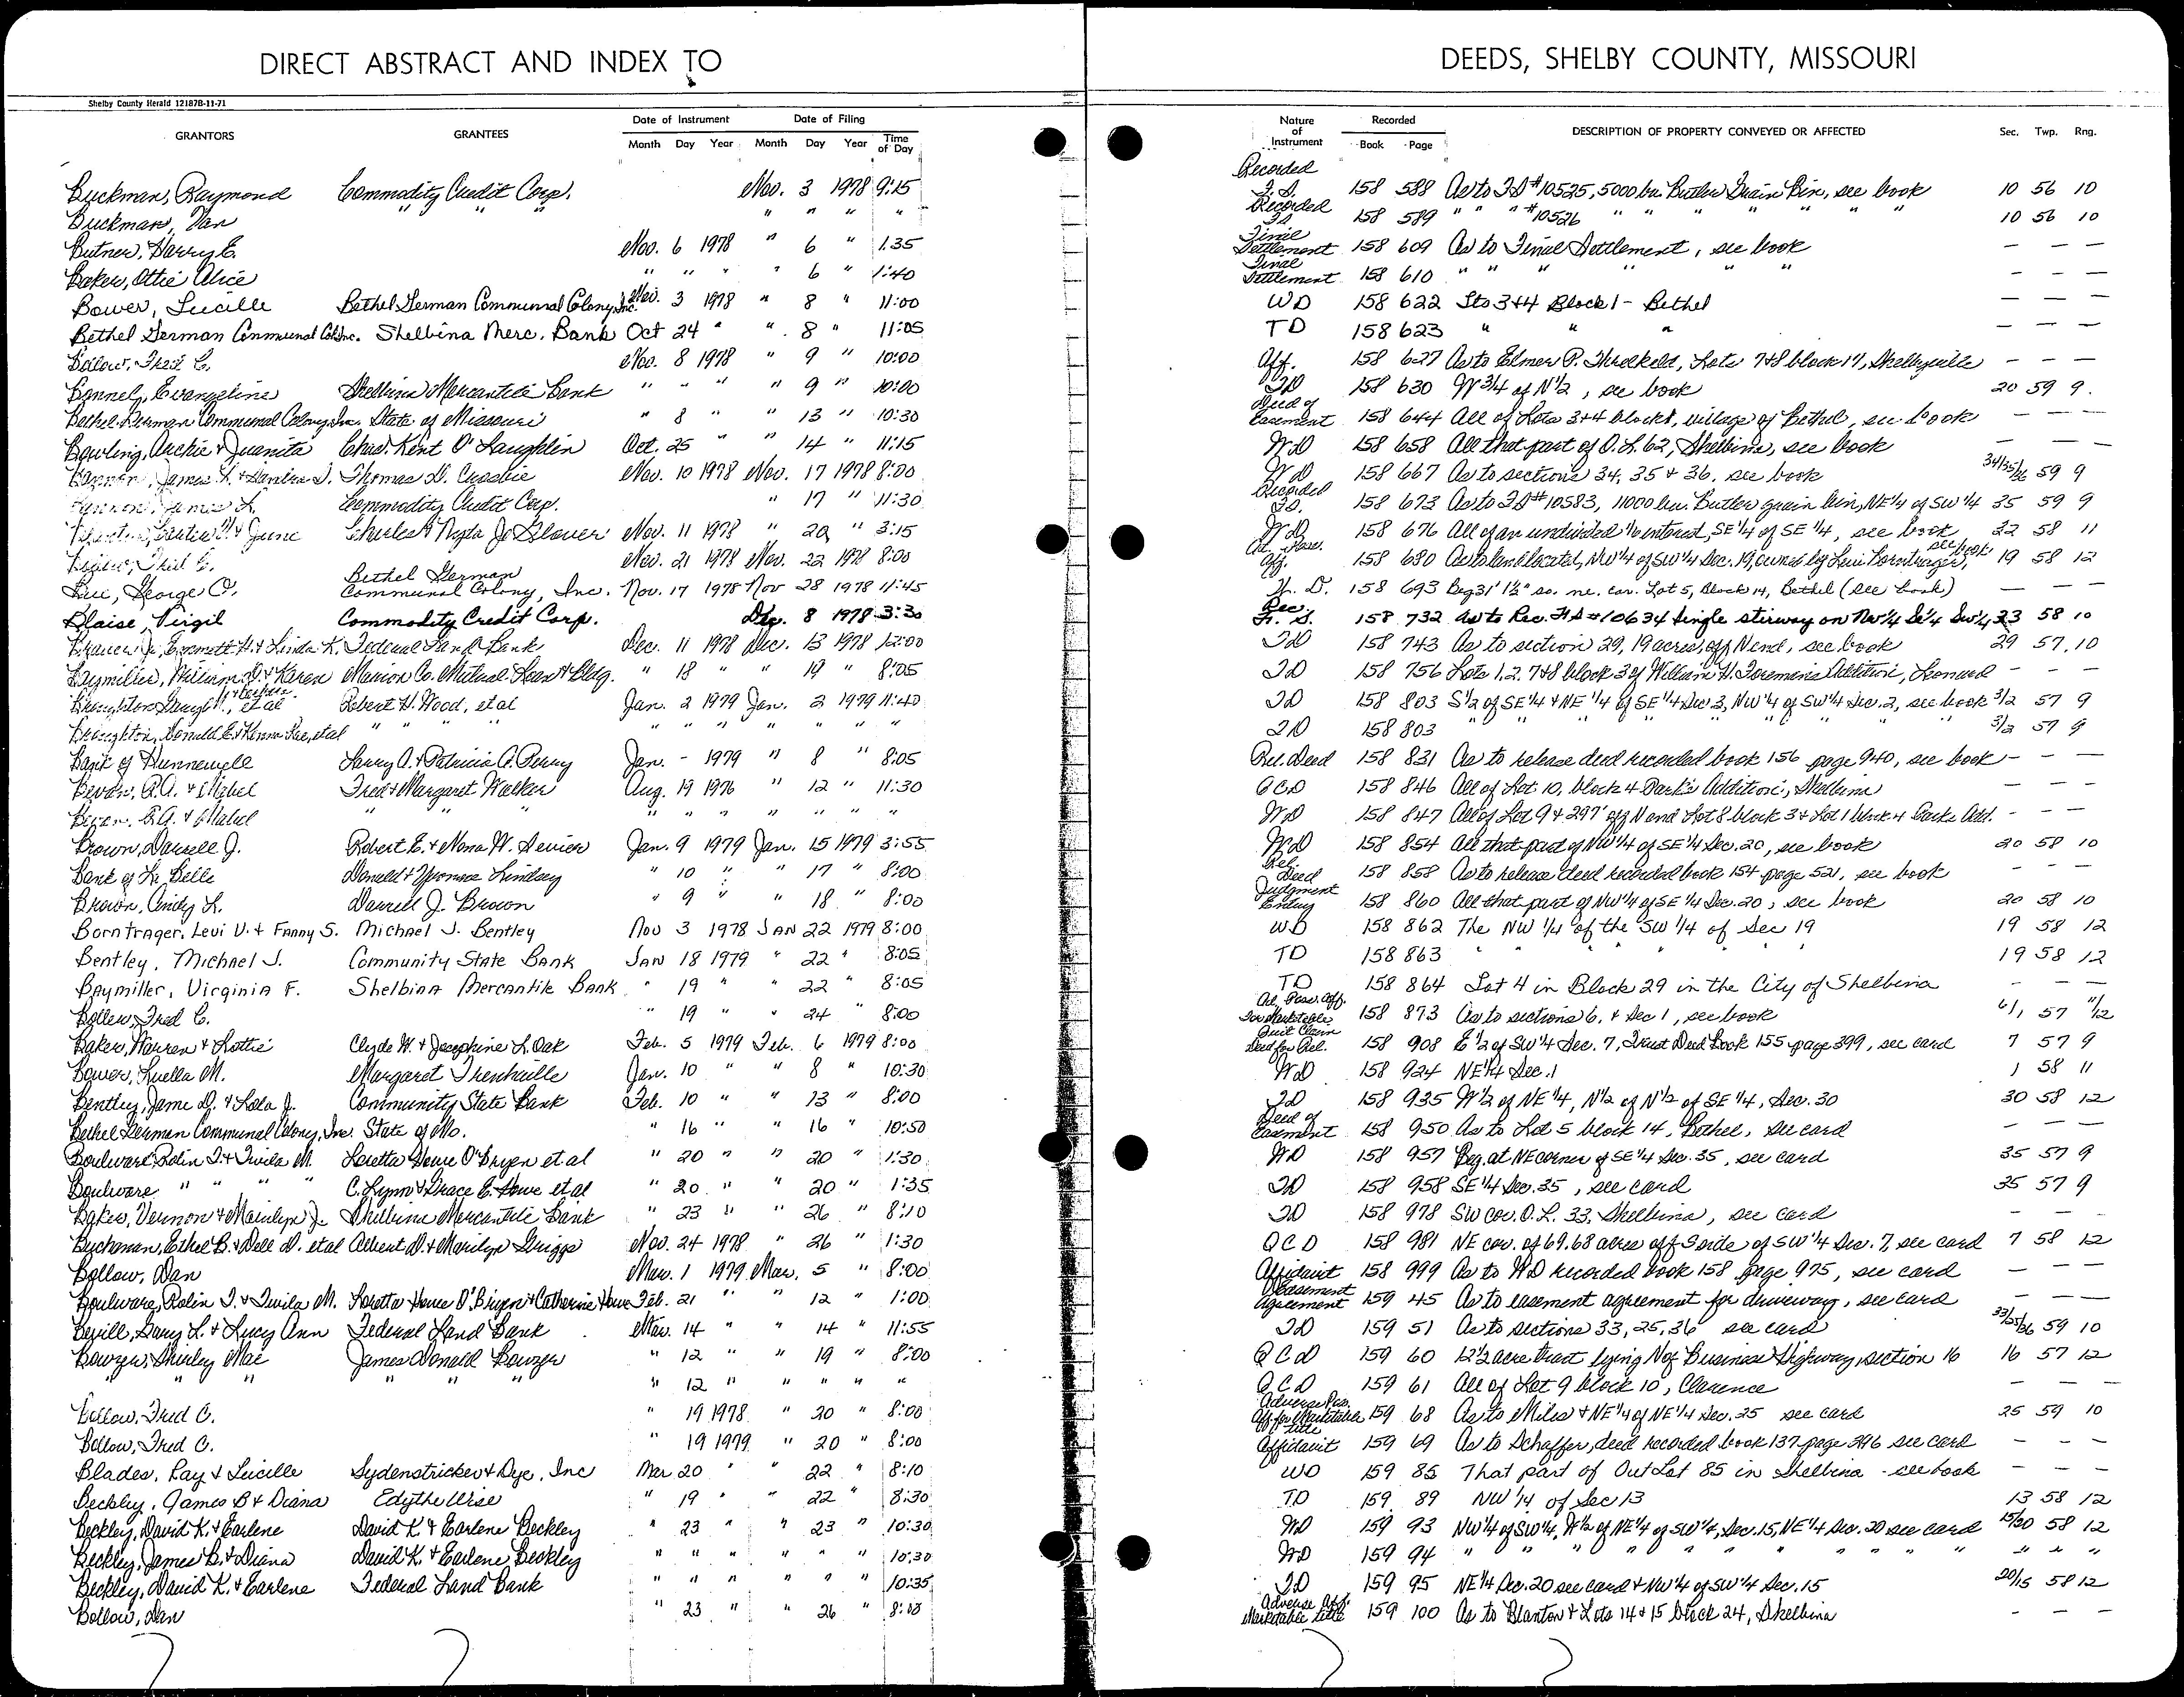 DIRECT ABSTRACT AND INDEX TO DEEDS, SHELBY COUNTY, MISSOURI
Shelby County Herald 12187B-11-71
GRANTORS GRANTEES Date of Instrument Month Day Year Date of Filing Month Day Year Time of Day Nature of Instrument Recorded Book Page DESCRIPTION OF PROPERTY CONVEYED OR AFFECTED Sec. Twp. Rng.
Buckman, Raymond Commodity Credit Corp. Nov. 3 1978 9:15 Recorded F.S. 158 588 As to FS #10525, 5000 bu. Butler Grain Bin, see book 10 56 10
Buckman, Dan " " " " " " " Recorded FS 158 589 " " " #10526 " " " " " " " 10 56 10
Butner, Harry E. Nov. 6 1978 " 6 " 1:35 Final Settlement 158 609 As to Final Settlement, see book — — —
Baker, Ottie Alice " " " " 6 " 1:40 Final Settlement 158 610 " " " " " — — —
Bower, Lucille Bethel German Communal Colony, Inc. Nov. 3 1978 " 8 " 11:00 WD 158 622 Lts 3+4 Block 1 - Bethel — — —
Bethel German Communal Col. Inc. Shelbina Merc. Bank Oct 24 " " 8 " 11:05 TD 158 623 " " " — — —
Bollow, Fred C. Nov. 8 1978 " 9 " 10:00 Aff. 158 627 As to Elmer P. Threlkeld, Lots 7+8 block 17, Shelbyville — — —
Bonnel, Evangeline Shelbina Mercantile Bank " " " " 9 " 10:00 TD 158 630 W 3/4 of N 1/2, see book 20 59 9.
Bethel German Communal Colony, Inc. State of Missouri " 8 " " 13 " 10:30 Deed of Easement 158 644 All of Lots 3+4 block 1, village of Bethel, see book — — —
Bowling, Archie + Juanita Chris. Kent O'Laughlin Oct. 25 " " 14 " 11:15 WD 158 658 All that part of O.L. 62, Shelbina, see book — — —
James L. + Sandra J. Thomas D. Crosbie Nov. 10 1978 Nov. 17 1978 8:00 WD 158 667 As to sections 34, 35 + 36, see book 34/35/36 59 9
James L. Commodity Credit Corp. " 17 " 11:30 Recorded FS. 158 673 As to FS #10583, 11000 bu. Butler grain bin, NE 1/4 of SW 1/4 35 59 9
+ June Charles + Nyla J. Glover Nov. 11 1978 " 20 " 3:15 WD 158 676 All of an undivided 1/6 interest, SE 1/4 of SE 1/4, see book 32 58 11
Fred C. Nov. 21 1978 Nov. 22 1978 8:00 Ad. Poss. Aff. 158 680 As to land located, NW 1/4 of SW 1/4 Sec. 19, owned by Levi Borntrager, see book 19 58 12
George O. Bethel German Communal Colony, Inc. Nov. 17 1978 Nov 28 1978 11:45 W. D. 158 693 Beg 31' 1½" so. ne. cor. Lot 5, Block 14, Bethel (see book) — —
Blaise, Virgil Commodity Credit Corp. Dec. 8 1978 3:30 Rec. F. S. 158 732 As to Rec. FS #10634 Single stirway on NW 1/4 SE 1/4 SW 1/4 23 58 10
Emmett H. + Linda K. Federal Land Bank Dec. 11 1978 Dec. 13 1978 12:00 TD 158 743 As to section 29, 19 acres, off N end, see book 29 57 10
Baymiller, William D. + Karen Marion Co. Mutual Loan + Bldg. " 18 " 19 " 8:05 TD 158 756 Lots 1, 2, 7+8 block 3 of William H. Foreman's Addition, Leonard — — —
Broughton, et al Robert H. Wood, et al Jan. 2 1979 Jan. 2 1979 11:40 TD 158 803 S 1/2 of SE 1/4 + NE 1/4 of SE 1/4 Sec 3, NW 1/4 of SW 1/4 Sec. 2, see book 3/2 57 9
Broughton, Donald E. + et al " " " " " " " " " TD 158 803 " " " " " 3/2 57 9
Bank of Hunnewell Larry A. + Patricia A. Perry Jan. - 1979 " 8 " 8:05 Rel. Deed 158 831 As to release deed recorded book 156 page 940, see book — — —
Bevan, R.A. + Mabel Fred + Margaret Walker Aug. 19 1976 " 12 " 11:30 QCD 158 846 All of Lot 10, block 4 Park's Addition, Shelbina — — —
Bevan, R.A. + Mabel " " " " " " " " " WD 158 847 All of Lot 9 + 297' off N end Lot 8 block 3 + Lot 1 block 4 Parks Add. — — —
Brown, Darrell J. Robert E. + Nona W. Jan. 9 1979 Jan. 15 1979 3:55 WD 158 854 All that part of NW 1/4 of SE 1/4 Sec. 20, see book 20 58 10
Bank of La Belle Donald + Yvonne Lindsay " 10 " " 17 " 8:00 Rel. Deed 158 858 As to release deed recorded book 154 page 521, see book — — —
Brown, Cindy L. Darrell J. Brown " 9 " " 18 " 8:00 Judgment Entry 158 860 All that part of NW 1/4 of SE 1/4 Sec. 20, see book 20 58 10
Borntrager, Levi U. + Fanny S. Michael J. Bentley Nov 3 1978 JAN 22 1979 8:00 WD 158 862 The NW 1/4 of the SW 1/4 of Sec 19 19 58 12
Bentley, Michael J. Community State Bank JAN 18 1979 " 22 " 8:05 TD 158 863 " " " " 19 58 12
Baymiller, Virginia F. Shelbina Mercantile Bank " 19 " " 22 " 8:05 TD 158 864 Lot 4 in Block 29 in the City of Shelbina — — —
Bollow, Fred C. " 19 " 24 8:00 Ad. Poss. Aff. for Marketable 158 873 As to sections 6, + Sec 1, see book 6/1 57 11/12
Baker, Warren + Lottie Clyde W. + Josephine L. Oak Feb. 5 1979 Feb. 6 1979 8:00 Quit Claim Deed for Rel. 158 908 E 1/2 of SW 1/4 Sec. 7, Trust Deed Book 155 page 399, see card 7 57 9
Bower, Luella M. Margaret Trenhaile Jan. 10 " " 8 " 10:30 WD 158 924 NE 1/4 Sec. 1 1 58 11
Bentley, Jame D. + Lola J. Community State Bank Feb. 10 " " 13 " 8:00 TD 158 935 W 1/2 of NE 1/4, N 1/2 of N 1/2 of SE 1/4, Sec. 30 30 58 12
Bethel German Communal Colony, Inc. State of Mo. " 16 " " 16 " 10:50 Deed of Easement 158 950 As to Lot 5 block 14, Bethel, see card — — —
Boulware, Rolin T. + Twila M. Loretta Howe O'Bryen et al " 20 " " 20 " 1:30 WD 158 957 Beg. at NE corner of SE 1/4 Sec. 35, see card 35 57 9
Boulware " " " " C. Lynn + Grace E. Howe et al " 20 " " 20 " 1:35 TD 158 958 SE 1/4 Sec. 35, see card 35 57 9
Baker, Vernon + Marilyn J. Shelbina Mercantile Bank " 23 " " 26 " 8:10 TD 158 978 SW cor. O.L. 33, Shelbina, see card — — —
Buchanan, Ethel B. + Dell D. et al Albert D. + Marilyn Griggs Nov. 24 1978 " 26 " 1:30 QCD 158 981 NE cor. of 69.68 acres off S side of SW 1/4 Sec. 7, see card 7 58 12
Bollow, Dan Mar. 1 1979 Mar. 5 " 8:00 Affidavit 158 999 As to WD recorded book 158 page 975, see card — — —
Boulware, Rolin T. + Twila M. Loretta Howe O'Bryen + Catherine Howe Feb. 21 " " 12 " 1:00 Easement Agreement 159 45 As to easement agreement for driveway, see card — — —
Bevill, Gary L. + Lucy Ann Federal Land Bank Mar. 14 " " 14 " 11:55 TD 159 51 As to sections 33, 25, 36 see card 33/25/36 59 10
Bowzer, Shirley Mae James Donald Bowzer " 12 " " 19 " 8:00 QCD 159 60 12 1/2 acre tract lying N of Business Highway, section 16 16 57 12
" " " " " " " 12 " " " " " QCD 159 61 All of Lot 9 block 10, Clarence — — —
Bollow, Fred C. " 19 1978 " 20 " 8:00 Adverse Pos. Aff. for Marketable title 159 68 As to Miles + NE 1/4 of NE 1/4 Sec. 25 see card 25 59 10
Bollow, Fred C. " 19 1979 " 20 " 8:00 Affidavit 159 69 As to Schaffer, deed recorded book 137 page 396 see card — — —
Blades, Ray + Lucille Sydenstricker + Dye, Inc Mar 20 " " 22 " 8:10 WD 159 85 That part of Out Lot 85 in Shelbina - see book — — —
Beckley, James B + Diana Edythe Wise " 19 " " 22 " 8:30 TD 159 89 NW 1/4 of Sec 13 13 58 12
Beckley, David K. + Earlene David K + Earlene Beckley " 23 " " 23 " 10:30 WD 159 93 NW 1/4 of SW 1/4, W 1/2 of NE 1/4 of SW 1/4, Sec. 15, NE 1/4 Sec. 20 see card 15/20 58 12
Beckley, James B. + Diana David K + Earlene Beckley " " " " " " 10:30 WD 159 94 " " " " " " " " " " " "
Beckley, David K. + Earlene Federal Land Bank " " " " " " 10:35 TD 159 95 NE 1/4 Sec. 20 see card + NW 1/4 of SW 1/4 Sec. 15 20/15 58 12
Bollow, Dan " 23 " " 26 " 8:10 Adverse Aff. Marketable title 159 100 As to Blanton + Lots 14 + 15 block 24, Shelbina — — —